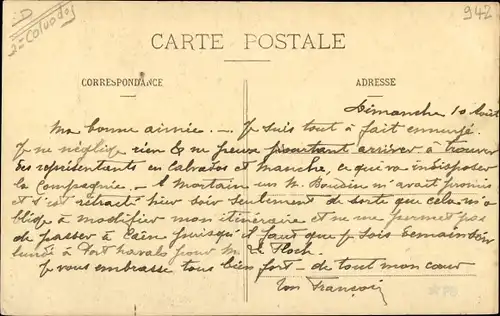 :D
2= Calvados
942
CARTE POSTALE
CORRESPONDANCE
ADRESSE
Dimanche 10 Août
Ma bonne aimée. — Je suis tout à fait ennuyé.
Je ne néglige rien & ne peux pourtant arriver à trouver
des représentants en Calvados et Manche, ce qui va indisposer
la Compagnie. — A Mortain un M. Boudin m'avait promis
et s'est rétracté hier soir seulement de sorte que cela m'a
obligé à modifier mon itinéraire et ne me permet pas
de passer à Caen puisqu'il faut que je sois
à Port pour M. Le Floch.
Je vous embrasse tous bien fort — de tout mon cœur
Ton François